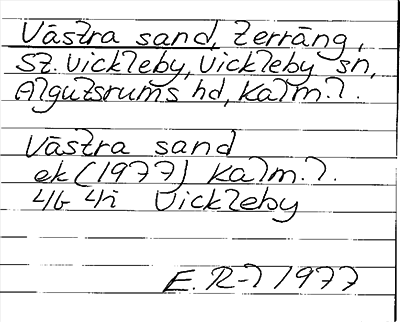 Västra sand, terräng,
St. Vickleby, Vickleby sn,
Algutsrums hd, Kalm. l.
Västra sand
ek (1977) Kalm. l.
4G 4i Vickleby
E. R-l 1977